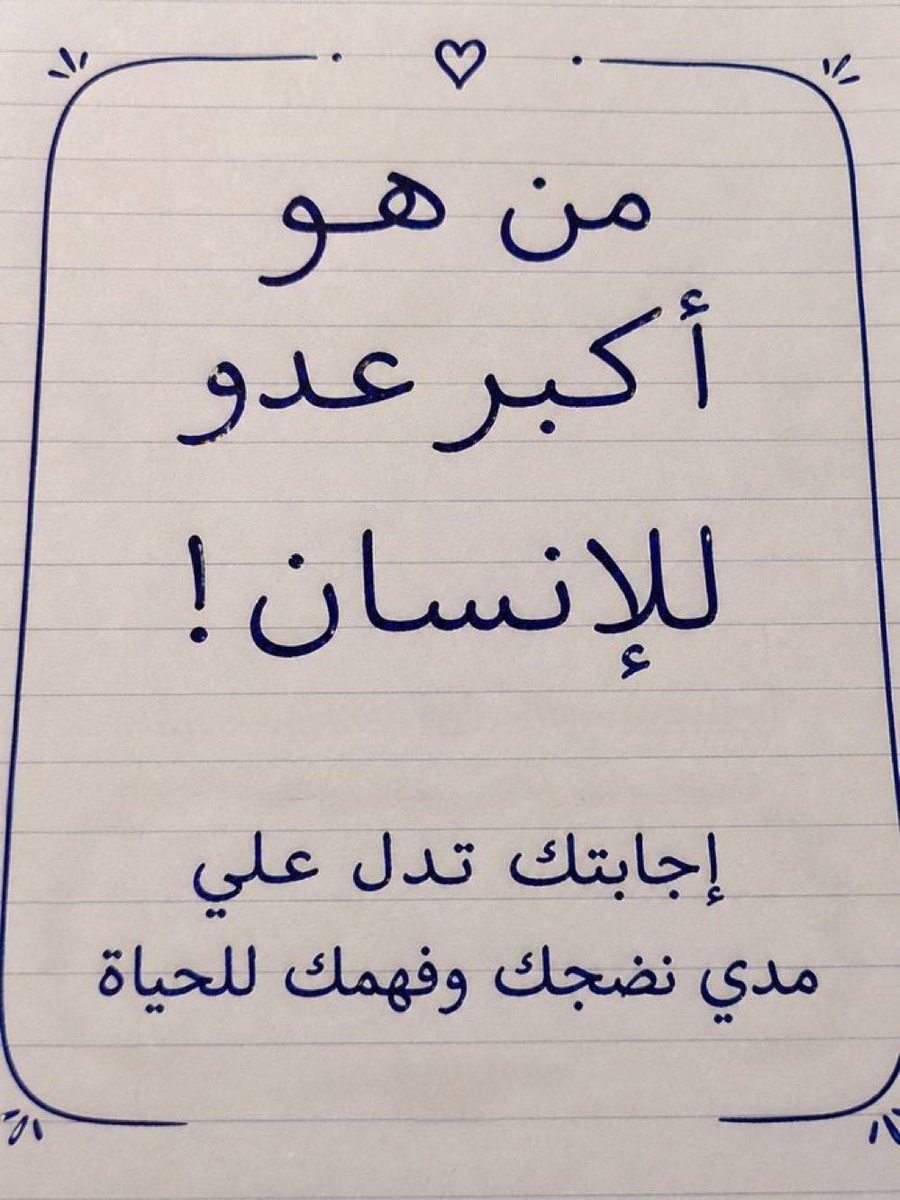 من هو
أكبر عدو
للإنسان !
إجابتك تدل علي
مدي نضجك وفهمك للحياة